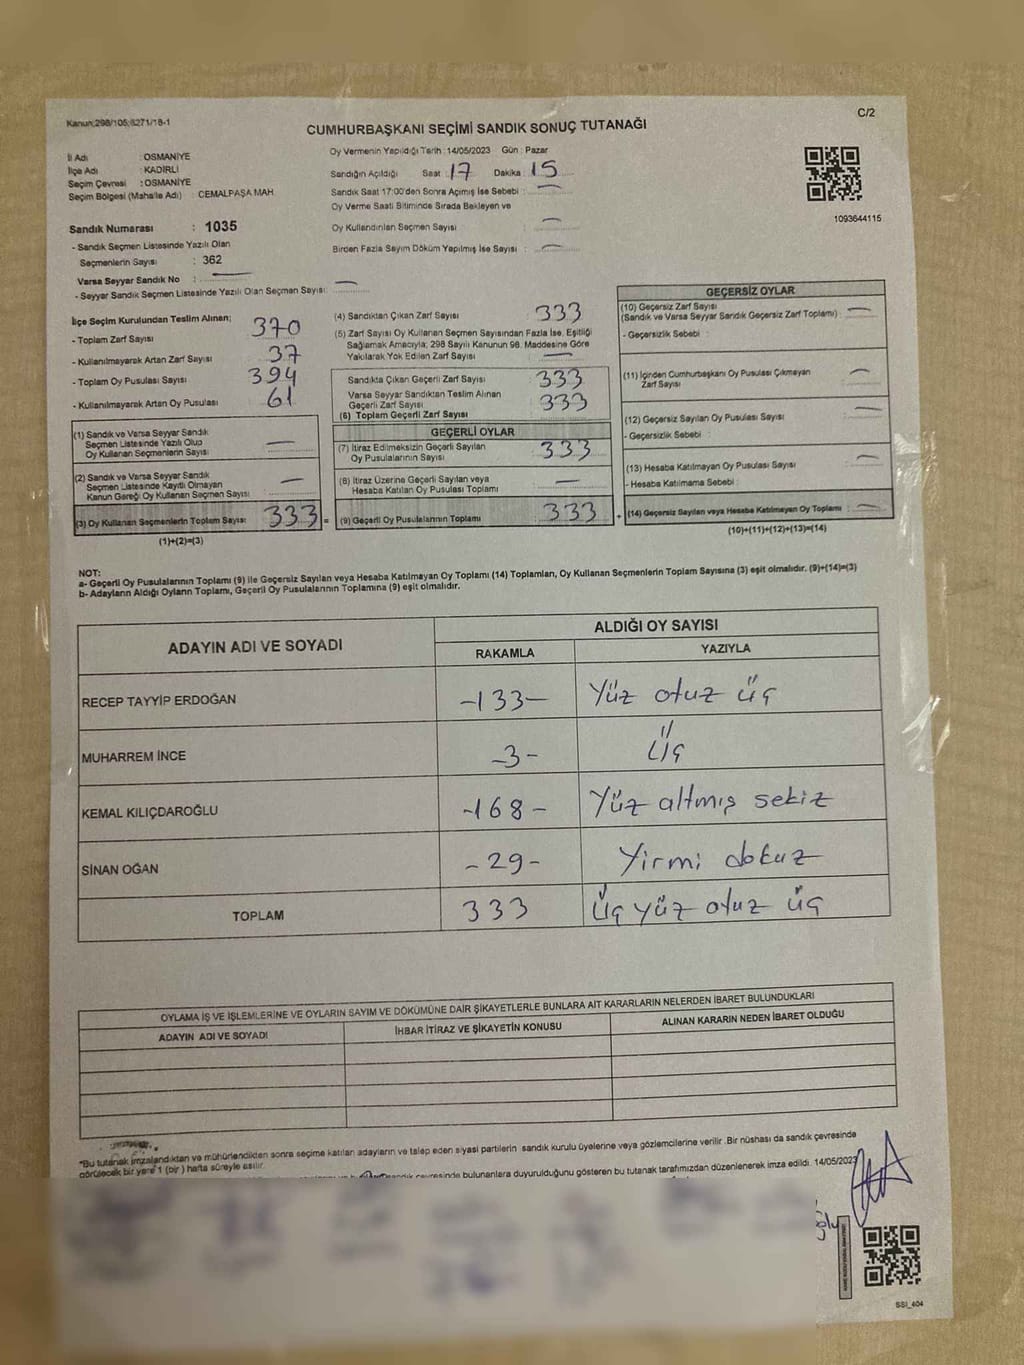 Kanun:298/105;6271/18-1
C/2
CUMHURBAŞKANI SEÇİMİ SANDIK SONUÇ TUTANAĞI
İl Adı : OSMANİYE
İlçe Adı : KADİRLİ
Seçim Çevresi : OSMANİYE
Seçim Bölgesi (Mahalle Adı) : CEMALPAŞA MAH.
Oy Vermenin Yapıldığı Tarih : 14/05/2023 Gün : Pazar
Sandığın Açıldığı Saat : 17 Dakika : 15
Sandık Saat 17:00'den Sonra Açılmış İse Sebebi : —
Oy Verme Saati Bitiminde Sırada Bekleyen ve
Oy Kullandırılan Seçmen Sayısı : —
Birden Fazla Sayım Döküm Yapılmış İse Sayısı : —
1093644115
Sandık Numarası : 1035
- Sandık Seçmen Listesinde Yazılı Olan
Seçmenlerin Sayısı : 362
Varsa Seyyar Sandık No : —
- Seyyar Sandık Seçmen Listesinde Yazılı Olan Seçmen Sayısı: —
İlçe Seçim Kurulundan Teslim Alınan;
- Toplam Zarf Sayısı 370
- Kullanılmayarak Artan Zarf Sayısı 37
- Toplam Oy Pusulası Sayısı 394
- Kullanılmayarak Artan Oy Pusulası 61
(1) Sandık ve Varsa Seyyar Sandık
Seçmen Listesinde Yazılı Olup
Oy Kullanan Seçmenlerin Sayısı —
(2) Sandık ve Varsa Seyyar Sandık
Seçmen Listesinde Kayıtlı Olmayan
Kanun Gereği Oy Kullanan Seçmen Sayısı —
(3) Oy Kullanan Seçmenlerin Toplam Sayısı 333 =
(1)+(2)=(3)
(4) Sandıktan Çıkan Zarf Sayısı 333
(5) Zarf Sayısı Oy Kullanan Seçmen Sayısından Fazla İse, Eşitliği
Sağlamak Amacıyla; 298 Sayılı Kanunun 98. Maddesine Göre
Yakılarak Yok Edilen Zarf Sayısı —
Sandıkta Çıkan Geçerli Zarf Sayısı 333
Varsa Seyyar Sandıktan Teslim Alınan
Geçerli Zarf Sayısı 333
(6) Toplam Geçerli Zarf Sayısı
GEÇERLİ OYLAR
(7) İtiraz Edilmeksizin Geçerli Sayılan
Oy Pusulalarının Sayısı 333
(8) İtiraz Üzerine Geçerli Sayılan veya
Hesaba Katılan Oy Pusulası Toplamı —
(9) Geçerli Oy Pusulalarının Toplamı 333 +
GEÇERSİZ OYLAR
(10) Geçersiz Zarf Sayısı
(Sandık ve Varsa Seyyar Sandık Geçersiz Zarf Toplamı) : —
- Geçersizlik Sebebi :
(11) İçinden Cumhurbaşkanı Oy Pusulası Çıkmayan
Zarf Sayısı —
(12) Geçersiz Sayılan Oy Pusulası Sayısı —
- Geçersizlik Sebebi :
(13) Hesaba Katılmayan Oy Pusulası Sayısı —
- Hesaba Katılmama Sebebi :
(14) Geçersiz Sayılan veya Hesaba Katılmayan Oy Toplamı —
(10)+(11)+(12)+(13)=(14)
NOT:
a- Geçerli Oy Pusulalarının Toplamı (9) ile Geçersiz Sayılan veya Hesaba Katılmayan Oy Toplamı (14) Toplamları, Oy Kullanan Seçmenlerin Toplam Sayısına (3) eşit olmalıdır. (9)+(14)=(3)
b- Adayların Aldığı Oyların Toplamı, Geçerli Oy Pusulalarının Toplamına (9) eşit olmalıdır.
ADAYIN ADI VE SOYADI
ALDIĞI OY SAYISI
RAKAMLA YAZIYLA
RECEP TAYYİP ERDOĞAN -133- Yüz otuz üç
MUHARREM İNCE -3- üç
KEMAL KILIÇDAROĞLU -168- Yüz altmış sekiz
SİNAN OĞAN -29- Yirmi dokuz
TOPLAM 333 Üç yüz otuz üç
OYLAMA İŞ VE İŞLEMLERİNE VE OYLARIN SAYIM VE DÖKÜMÜNE DAİR ŞİKAYETLERLE BUNLARA AİT KARARLARIN NELERDEN İBARET BULUNDUKLARI
ADAYIN ADI VE SOYADI İHBAR İTİRAZ VE ŞİKAYETİN KONUSU ALINAN KARARIN NEDEN İBARET OLDUĞU
*Bu tutanak imzalandıktan ve mühürlendikten sonra seçime katılan adayların ve talep eden siyasi partilerin sandık kurulu üyelerine veya gözlemcilerine verilir .Bir nüshası da sandık çevresinde
görülecek bir yere 1 (bir ) hafta süreyle asılır.
sandık çevresinde bulunanlara duyurulduğunu gösteren bu tutanak tarafımızdan düzenlenerek imza edildi. 14/05/2023
SSI_404